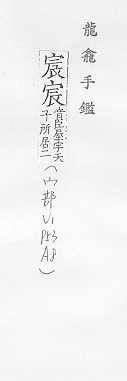 龍龕手鑑
宸音臣屋宇天
子所居二
(宀部 V1 P53 A8)